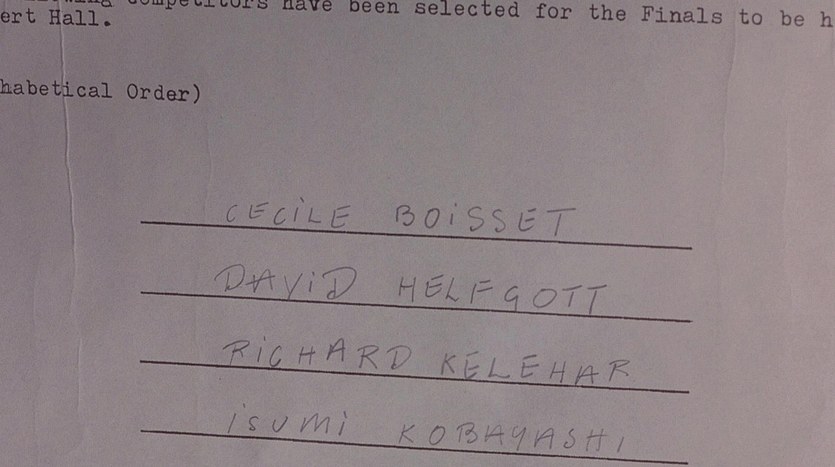 competitors have been selected for the Finals to be h
ert Hall.
habetical Order)
CECiLE BOiSSET
DAViD HELFGOTT
RiCHARD KELEHAR
iSUMi KOBAYASHI